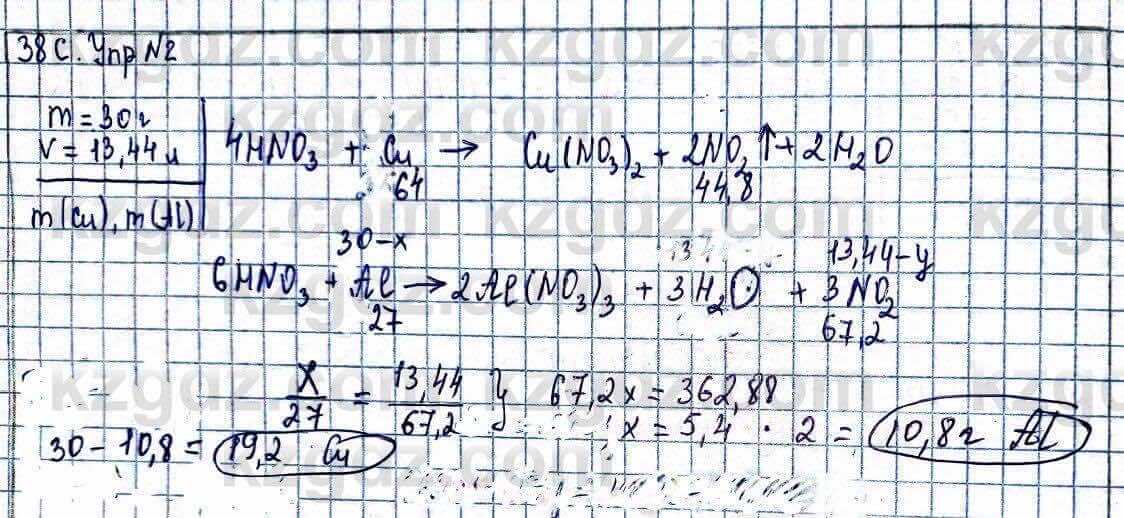 38 с. Упр №2
m = 30 г
V = 13,44 л
m(Cu), m(Al)
4HNO₃ + Cu → Cu(NO₃)₂ + 2NO₂↑ + 2H₂O
64 44,8
30-x 13,44-y
6HNO₃ + Al → 2Al(NO₃)₃ + 3H₂O + 3NO₂
27 67,2
x/27 = 13,44/67,2 } 67,2x = 362,88
x = 5,4 · 2 = 10,8г Al
30 - 10,8 = 19,2 Cu
kzgdz.com